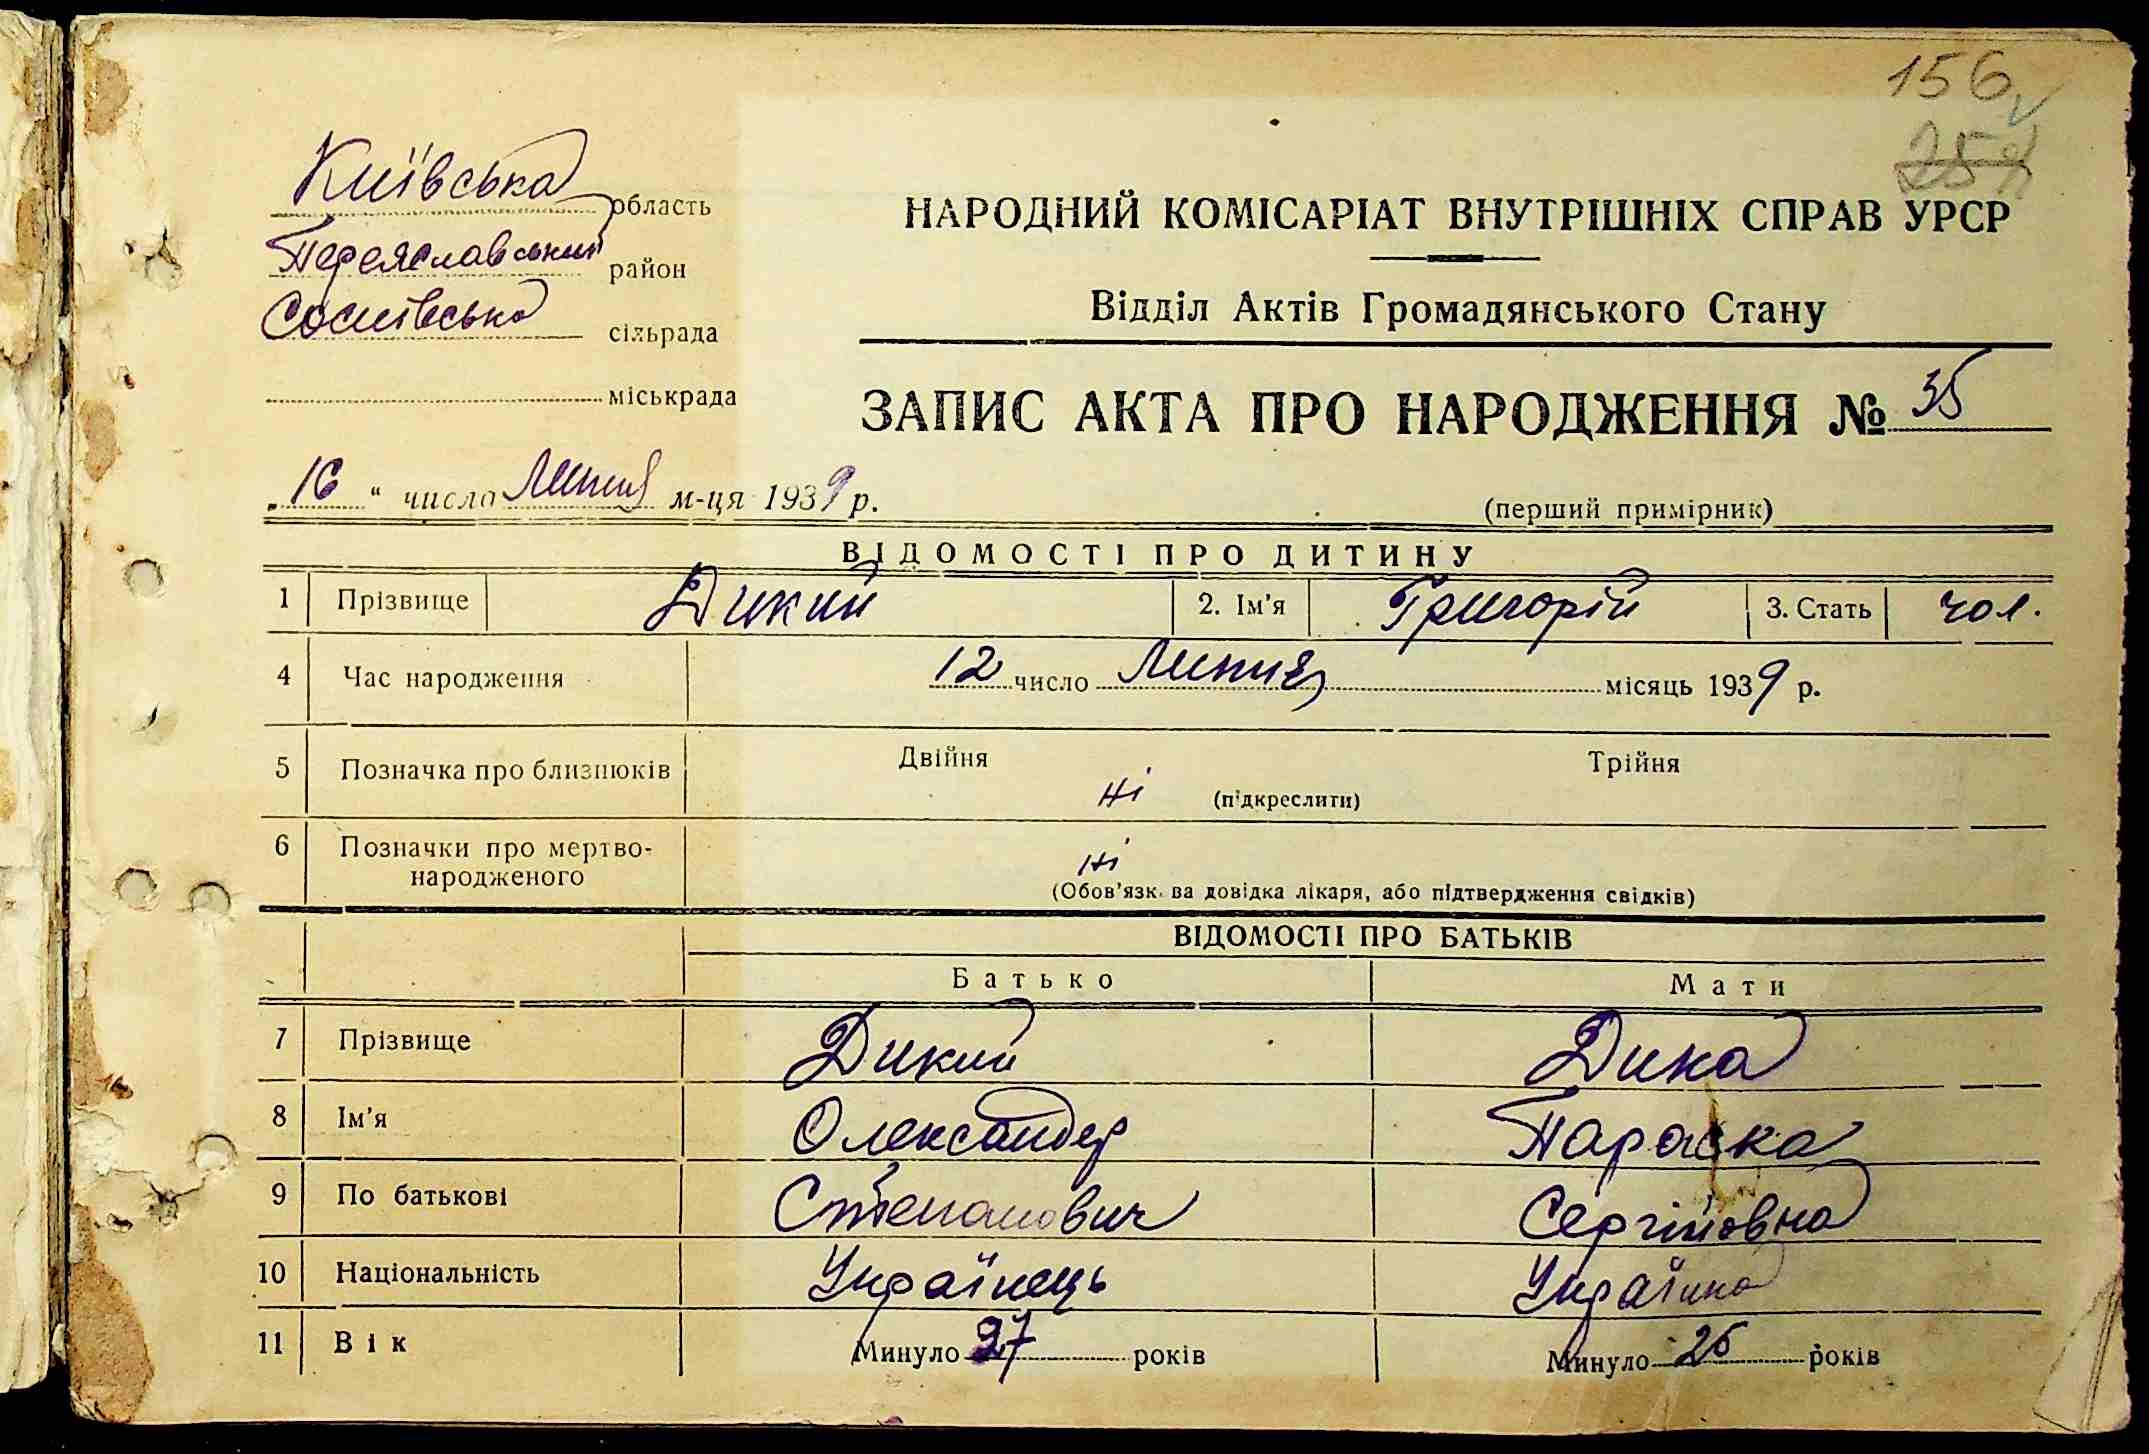 156
Київська область
Переяславський район
Соснівська сільрада
міськрада
НАРОДНИЙ КОМІСАРІАТ ВНУТРІШНІХ СПРАВ УРСР
Відділ Актів Громадянського Стану
ЗАПИС АКТА ПРО НАРОДЖЕННЯ № 35
„16“ числа Липня м-ця 1939 р.
(перший примірник)
ВІДОМОСТІ ПРО ДИТИНУ
1 Прізвище Дикий 2. Ім'я Григорій 3. Стать чол.
4 Час народження 12 число Липня місяць 1939 р.
5 Позначка про близнюків Двійня Трійня
ні (підкреслити)
6 Позначки про мертво-
народженого ні
(Обов'язк. ва довідка лікаря, або підтвердження свідків)
ВІДОМОСТІ ПРО БАТЬКІВ
Батько Мати
7 Прізвище Дикий Дика
8 Ім'я Олександер Параска
9 По батькові Степанович Сергійовна
10 Національність Українець Українка
11 Вік Минуло 27 років Минуло років